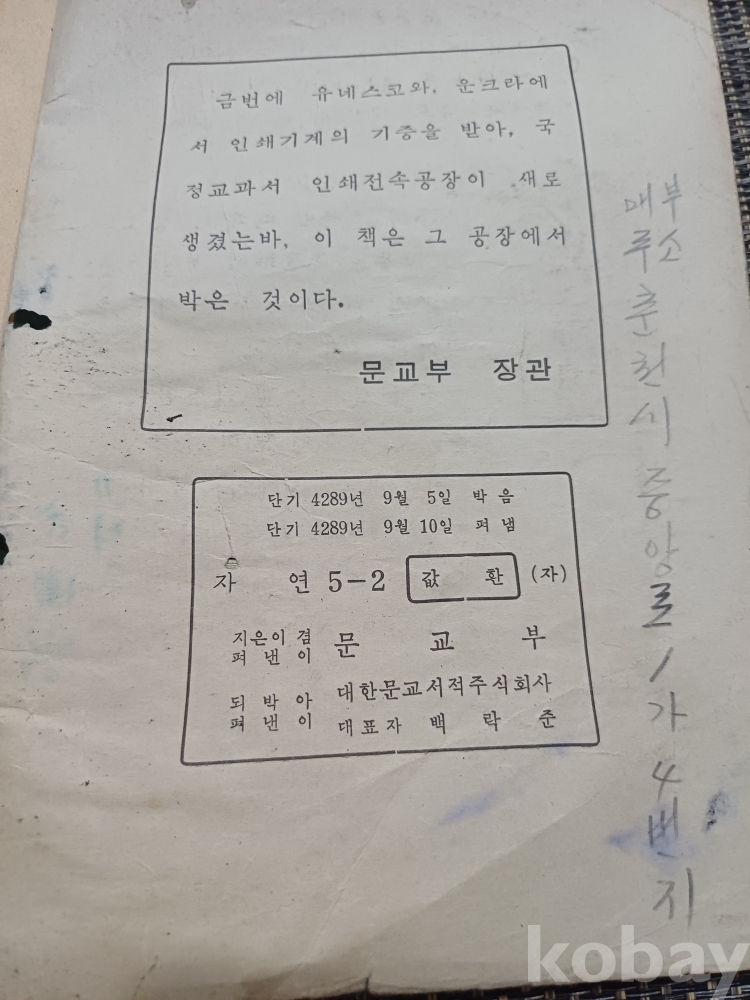 금번에 유네스코와, 운크라에
서 인쇄기계의 기증을 받아, 국
정교과서 인쇄전속공장이 새로
생겼는바, 이 책은 그 공장에서
박은 것이다.
문교부 장관
단기 4289년 9월 5일 박음
단기 4289년 9월 10일 펴냄
자 연 5-2 값 환 (자)
지은이 겸
펴 낸 이
문 교 부
되 박 아
펴 낸 이
대한문교서적주식회사
대표자 백 락 준
춘천시 중앙로 1가 4번지
kobay